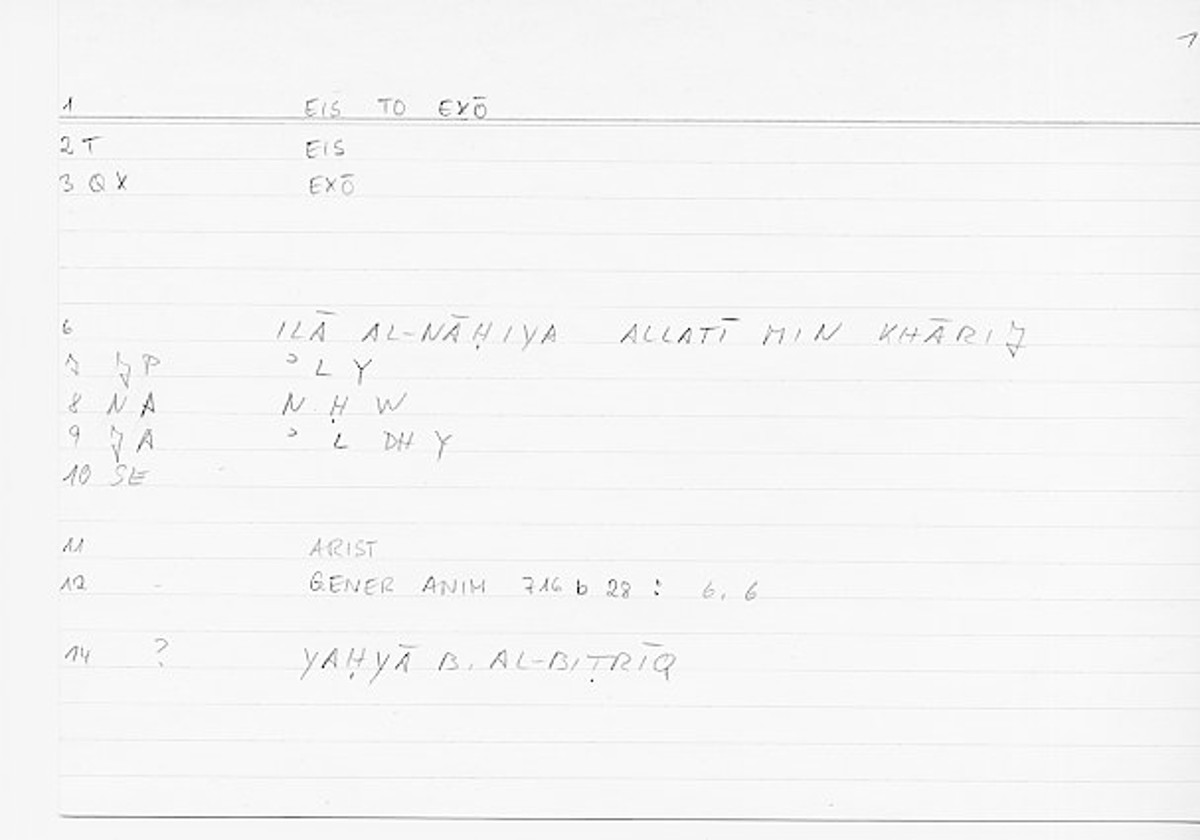 1
1 EIS TO EXŌ
2 T EIS
3 Q X EXŌ
6 ILĀ AL-NĀḤIYA ALLATĪ MIN KHĀRIJ
7 JP ʾ L Y
8 N A N Ḥ W
9 J A ʾ L DH Y
10 SE
11 ARIST
12 GENER ANIM 716 b 28 : 6, 6
14 ? YAḤYĀ B. AL-BIṬRĪQ